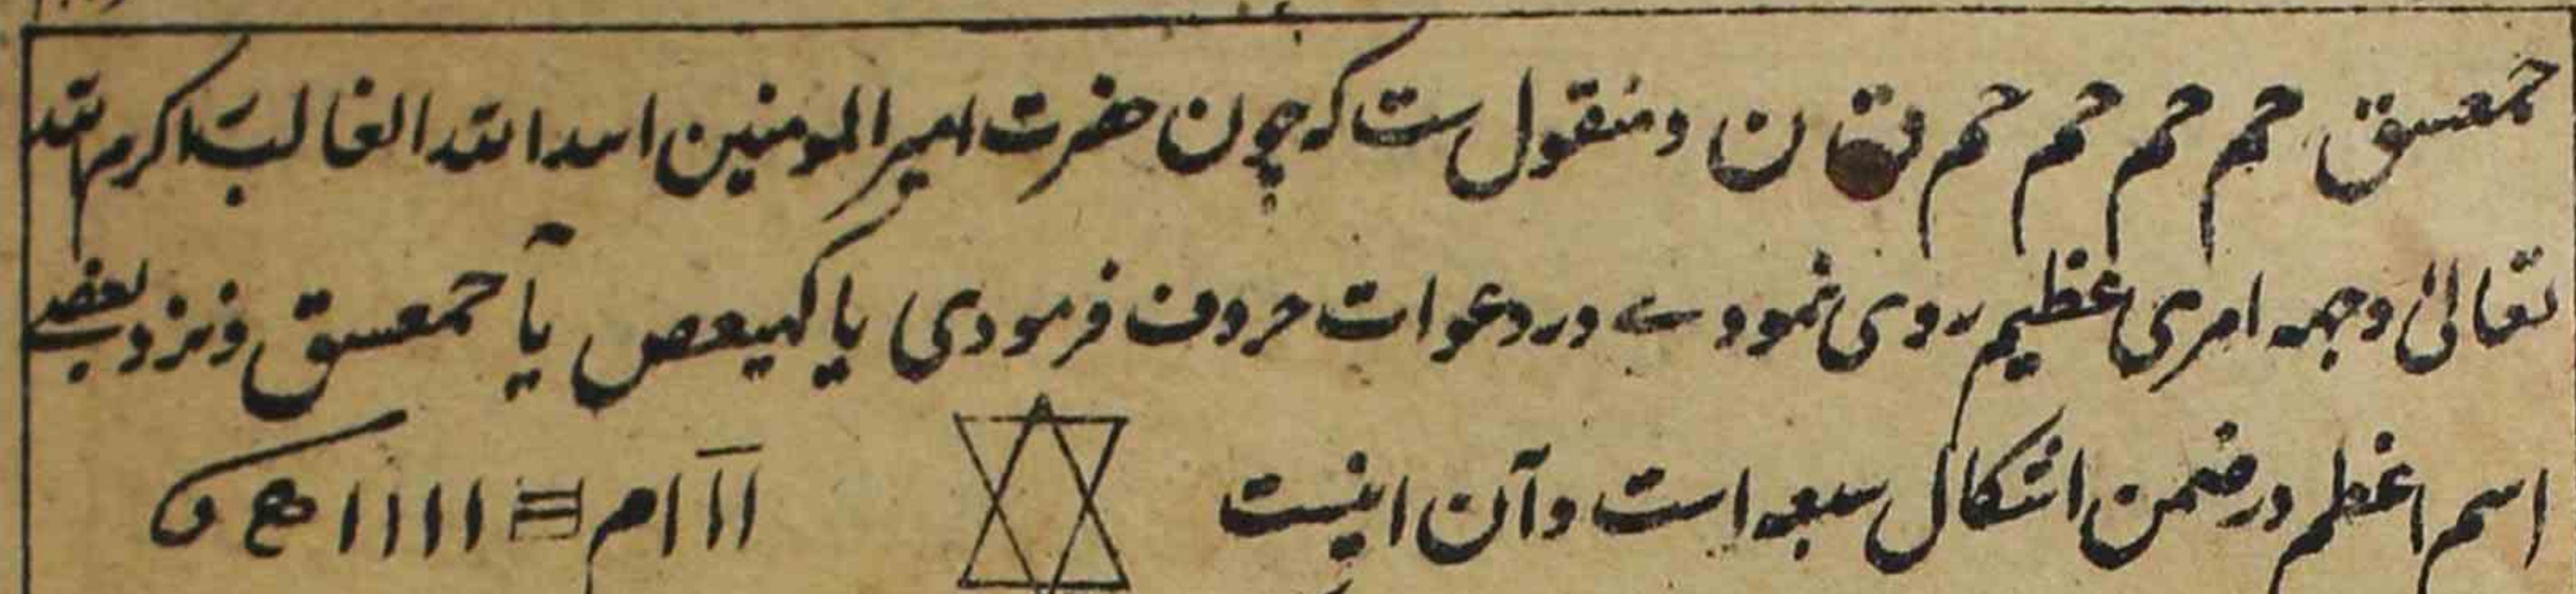 حمعسق حم حم حم حم ق ن ومنقول ست که چون حضرت امیر المومنین اسد الله الغالب اکرم الله
تعالیٰ وجهه امری عظیم روی نمودے در دعوات حروف فرمودی یا کهیعص یا حمعسق ونزد بعضے
اسم اعظم در ضمن اشکال سبعه است وآن اینست ۱۱۱ ام ۱۱۱۱ ھ و